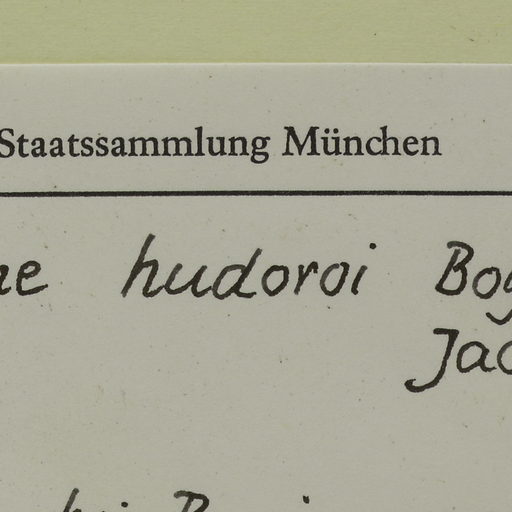 Staatssammlung München
ne hudoroi Bog
Jac
bei